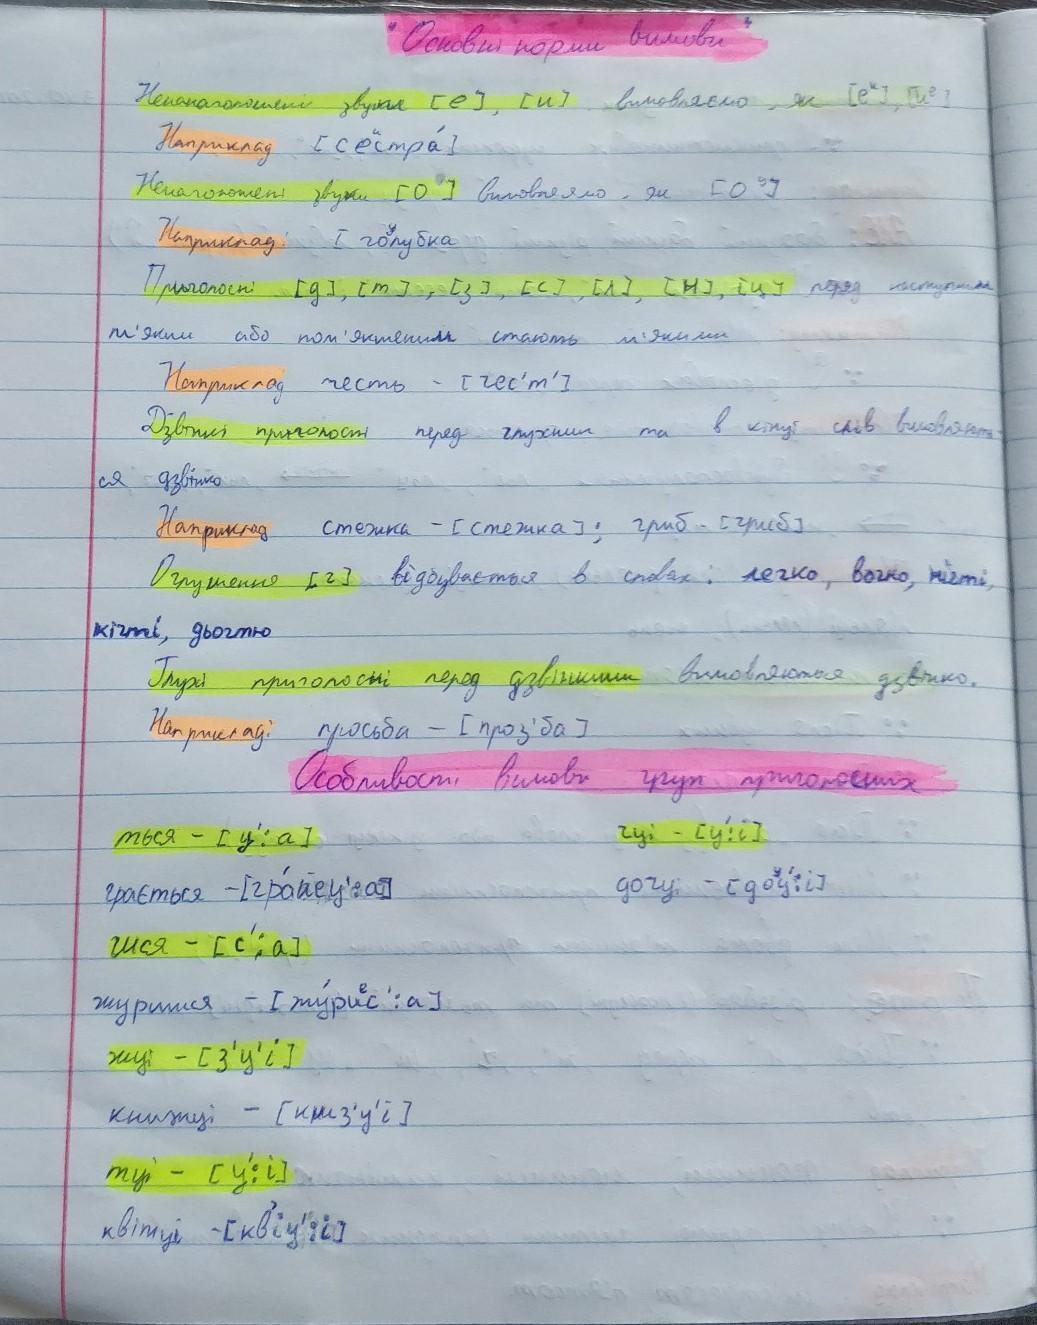 "Основні норми вимови"
Ненаголошені звуки [е], [и] вимовляємо, як [еи], [ие]
Наприклад [сеистра́]
Ненаголошені звуки [о] вимовляємо, як [оу]
Наприклад: [гоулубка
Приголосні [д], [т], [з], [с], [л], [н], [ц] перед наступним
м'яким або пом'якшеним стають м'якими
Наприклад честь - [чес'т']
Дзвінкі приголосні перед глухими та в кінці слів вимовляють-
ся дзвінко
Наприклад стежка - [стежка]; гриб - [гриб]
Оглушення [г] відбувається в словах: легко, вогко, нігті,
кігті, дьогтю
Глухі приголосні перед дзвінкими вимовляються дзвінко.
Наприклад: просьба - [проз'ба]
Особливості вимови груп приголосних
ться - [ц':а] чці - [ц':і]
грається - [гра́йец':а] дочці - [доуц':і]
шся - [с':а]
журишся - [жу́риес':а]
жці - [з'ц'і]
книжці - [книз'ц'і]
тці - [ц':і]
квітці - [кв'іц':і]